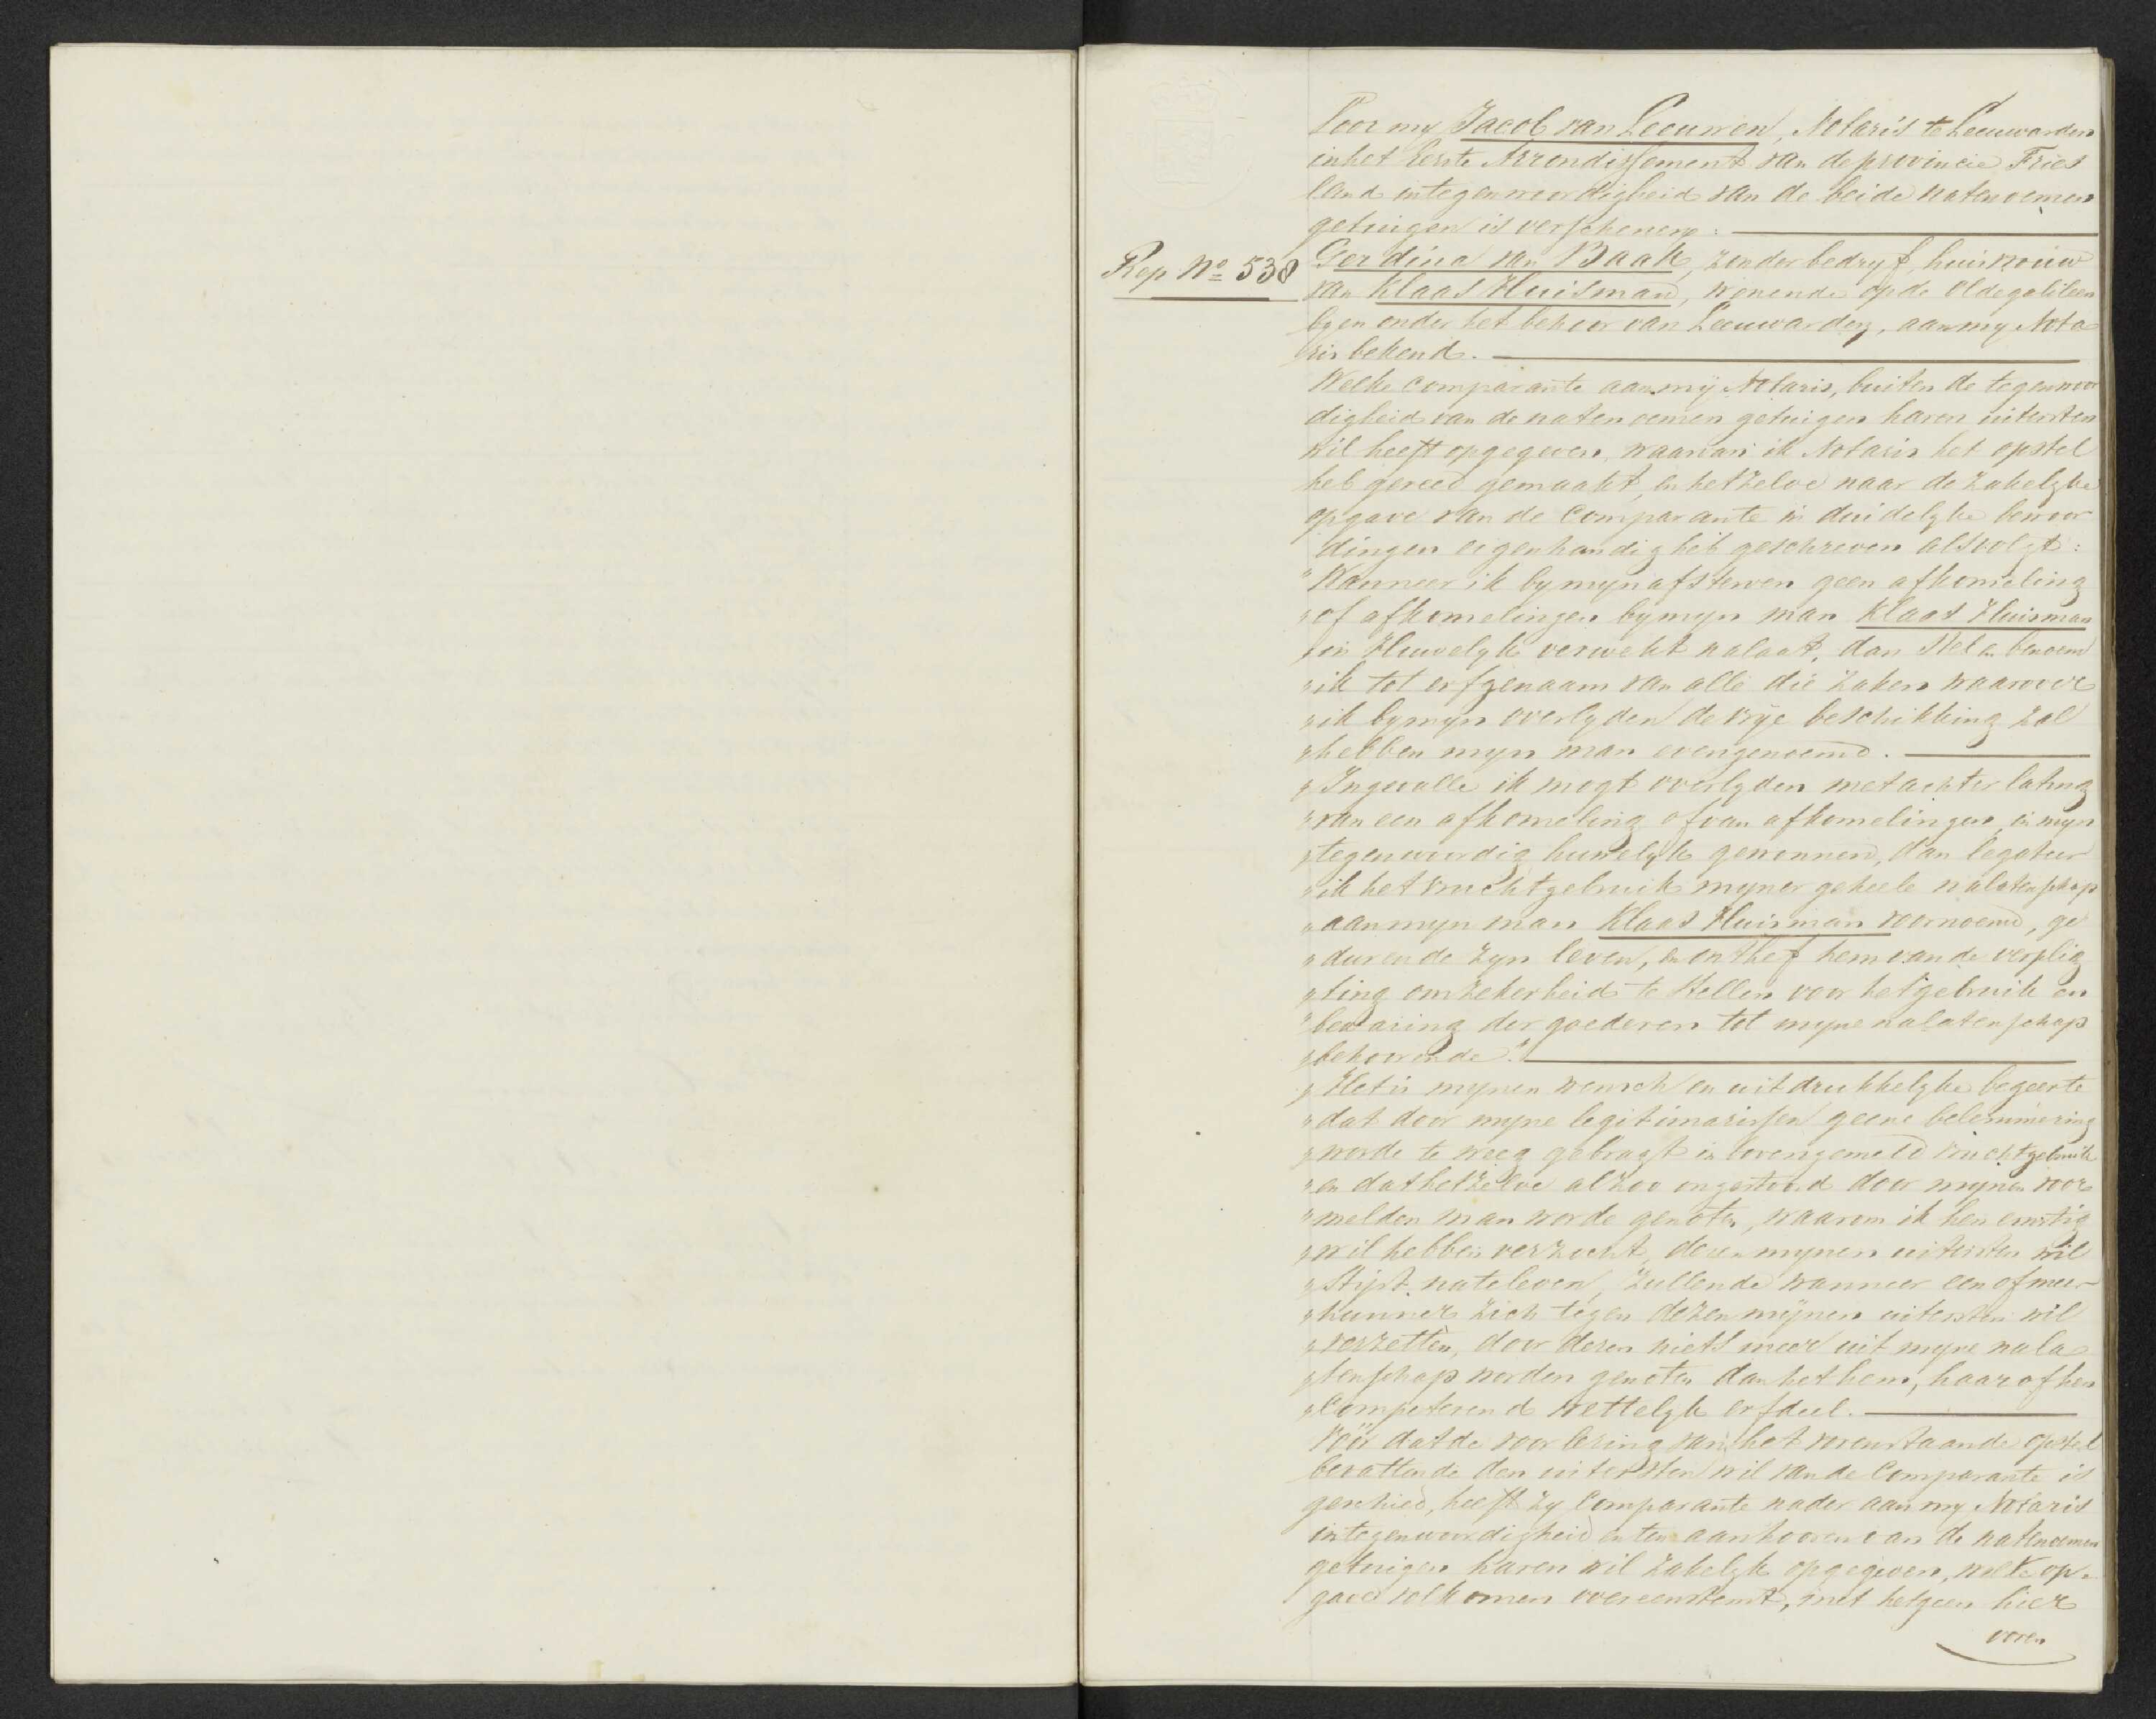 Voor my Jacob van Leeuwen, Notaris te Leeuwarden
in het Eerste Arrondissement van de provincie Fries
land in tegenwoordigheid van de beide natenoemen
getuigen is verschenen:
Rep Nº 538
Gerdina van Baak, zonder bedryf, huisvrouw
van Klaas Huisman, wonende op de Oldegalileen
bgen onder het behoor van Leeuwarden, aan my Nota
ris bekend.
Welke comparante aan mij Notaris, buiten de tegenwoor
digheid van de natenoemen getuigen haren uitersten
wil heeft opgegeven, waarvan ik Notaris het opstel
heb gereed gemaakt, en hetzelve naar de zakelyke
opgave van de Comparante in duidelyke bewoor
dingen eigenhandig heb geschreven als volgt:
"Wanneer ik by myn afsterven geen afkomeling
"of afkomelingen by myn man Klaas Huisman
"in Huwelyk verwekt nalaat, dan stel en benoem
"ik tot erfgenaam van alle die zaken waarover
"ik by myn overlyden de vrije beschikking zal
"hebben myn man evengenoemd.
"Ingevalle ik mogt overlyden met achterlating
"van een afkomeling of van afkomelingen, in myn
"tegenwoordig huwelyk gewonnen, dan legateer
"ik het vruchtgebruik myner geheele nalatenschap
"aan myn man Klaas Huisman voornoemd, ge
"durende zyn leven, en onthef hem van de verplig
"ting om zekerheid te stellen voor het gebruik en
"bewaring der goederen tot myne nalatenschap
"behoorende.
"Het is mynen wensch en uitdrukkelyke begeerte
"dat door myne legitimarissen geene belemmering
"worde te weeg gebragt in bovengemeld vruchtgebruik
"en dat hetzelve alzoo ongestoord door mynen voor
"melden man worde genoten, waarom ik hen ernstig
"wil hebben verzocht, dezen mynen uitersten wil
"stipt nateleven, zullende wanneer een of meer
"hunner zich tegen dezen mijnen uitersten wil
"verzetten, door dezen niets meer uit myne nala
"tenschap worden genoten dan het hem, haar of hen
"Competerend wettelyk erfdeel.
Vóór dat de voorlezing van het vorenstaande opstel
bevattende den uitersten wil van de Comparante is
geschied, heeft zy Comparante nader aan my Notaris
in tegenwoordigheid en ten aanhooren van de natenoemen
getuigen haren wil zakelyk opgegeven, welke op-
gave volkomen overeenstemt, met hetgeen hier
voren